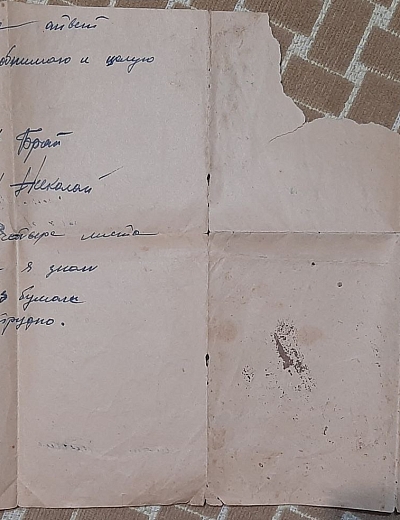 ответ
обнимаю и целую
Брат
Николай
Четыре листа
я знаю
бумага
трудно.